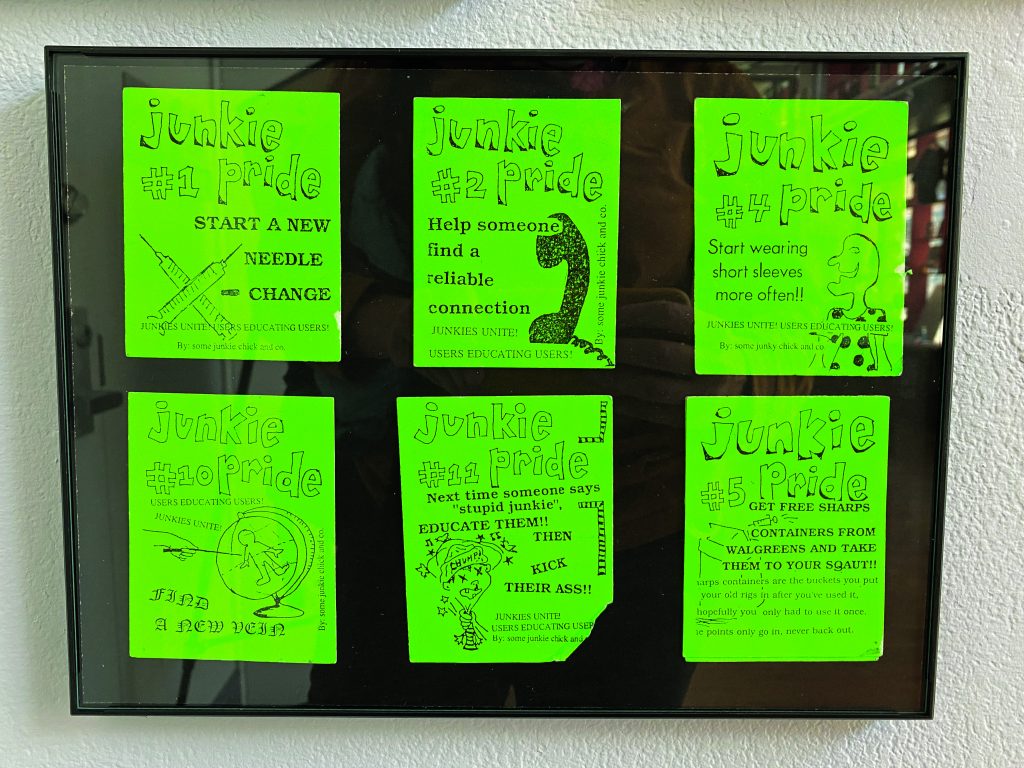 junkie
#1 pride
START A NEW
NEEDLE
- CHANGE
JUNKIES UNITE! USERS EDUCATING USERS!
By: some junkie chick and co.
junkie
#2 pride
Help someone
find a
reliable
connection
JUNKIES UNITE!
USERS EDUCATING USERS!
By: some junkie chick and co.
junkie
#4 pride
Start wearing
short sleeves
more often!!
JUNKIES UNITE! USERS EDUCATING USERS!
By: some junky chick and co.
junkie
#10 pride
USERS EDUCATING USERS!
JUNKIES UNITE!
FIND
A NEW VEIN
By: some junkie chick and co.
junkie
#11 pride
Next time someone says
"stupid junkie",
EDUCATE THEM!!
THEN
KICK
THEIR ASS!!
CHUMP!
JUNKIES UNITE!
USERS EDUCATING USE
By: some junkie chick and
junkie
#5 Pride
GET FREE SHARPS
CONTAINERS FROM
WALGREENS AND TAKE
THEM TO YOUR SQAUT!!
arps containers are the buckets you put
your old rigs in after you've used it,
hopefully you only had to use it once.
e points only go in, never back out.